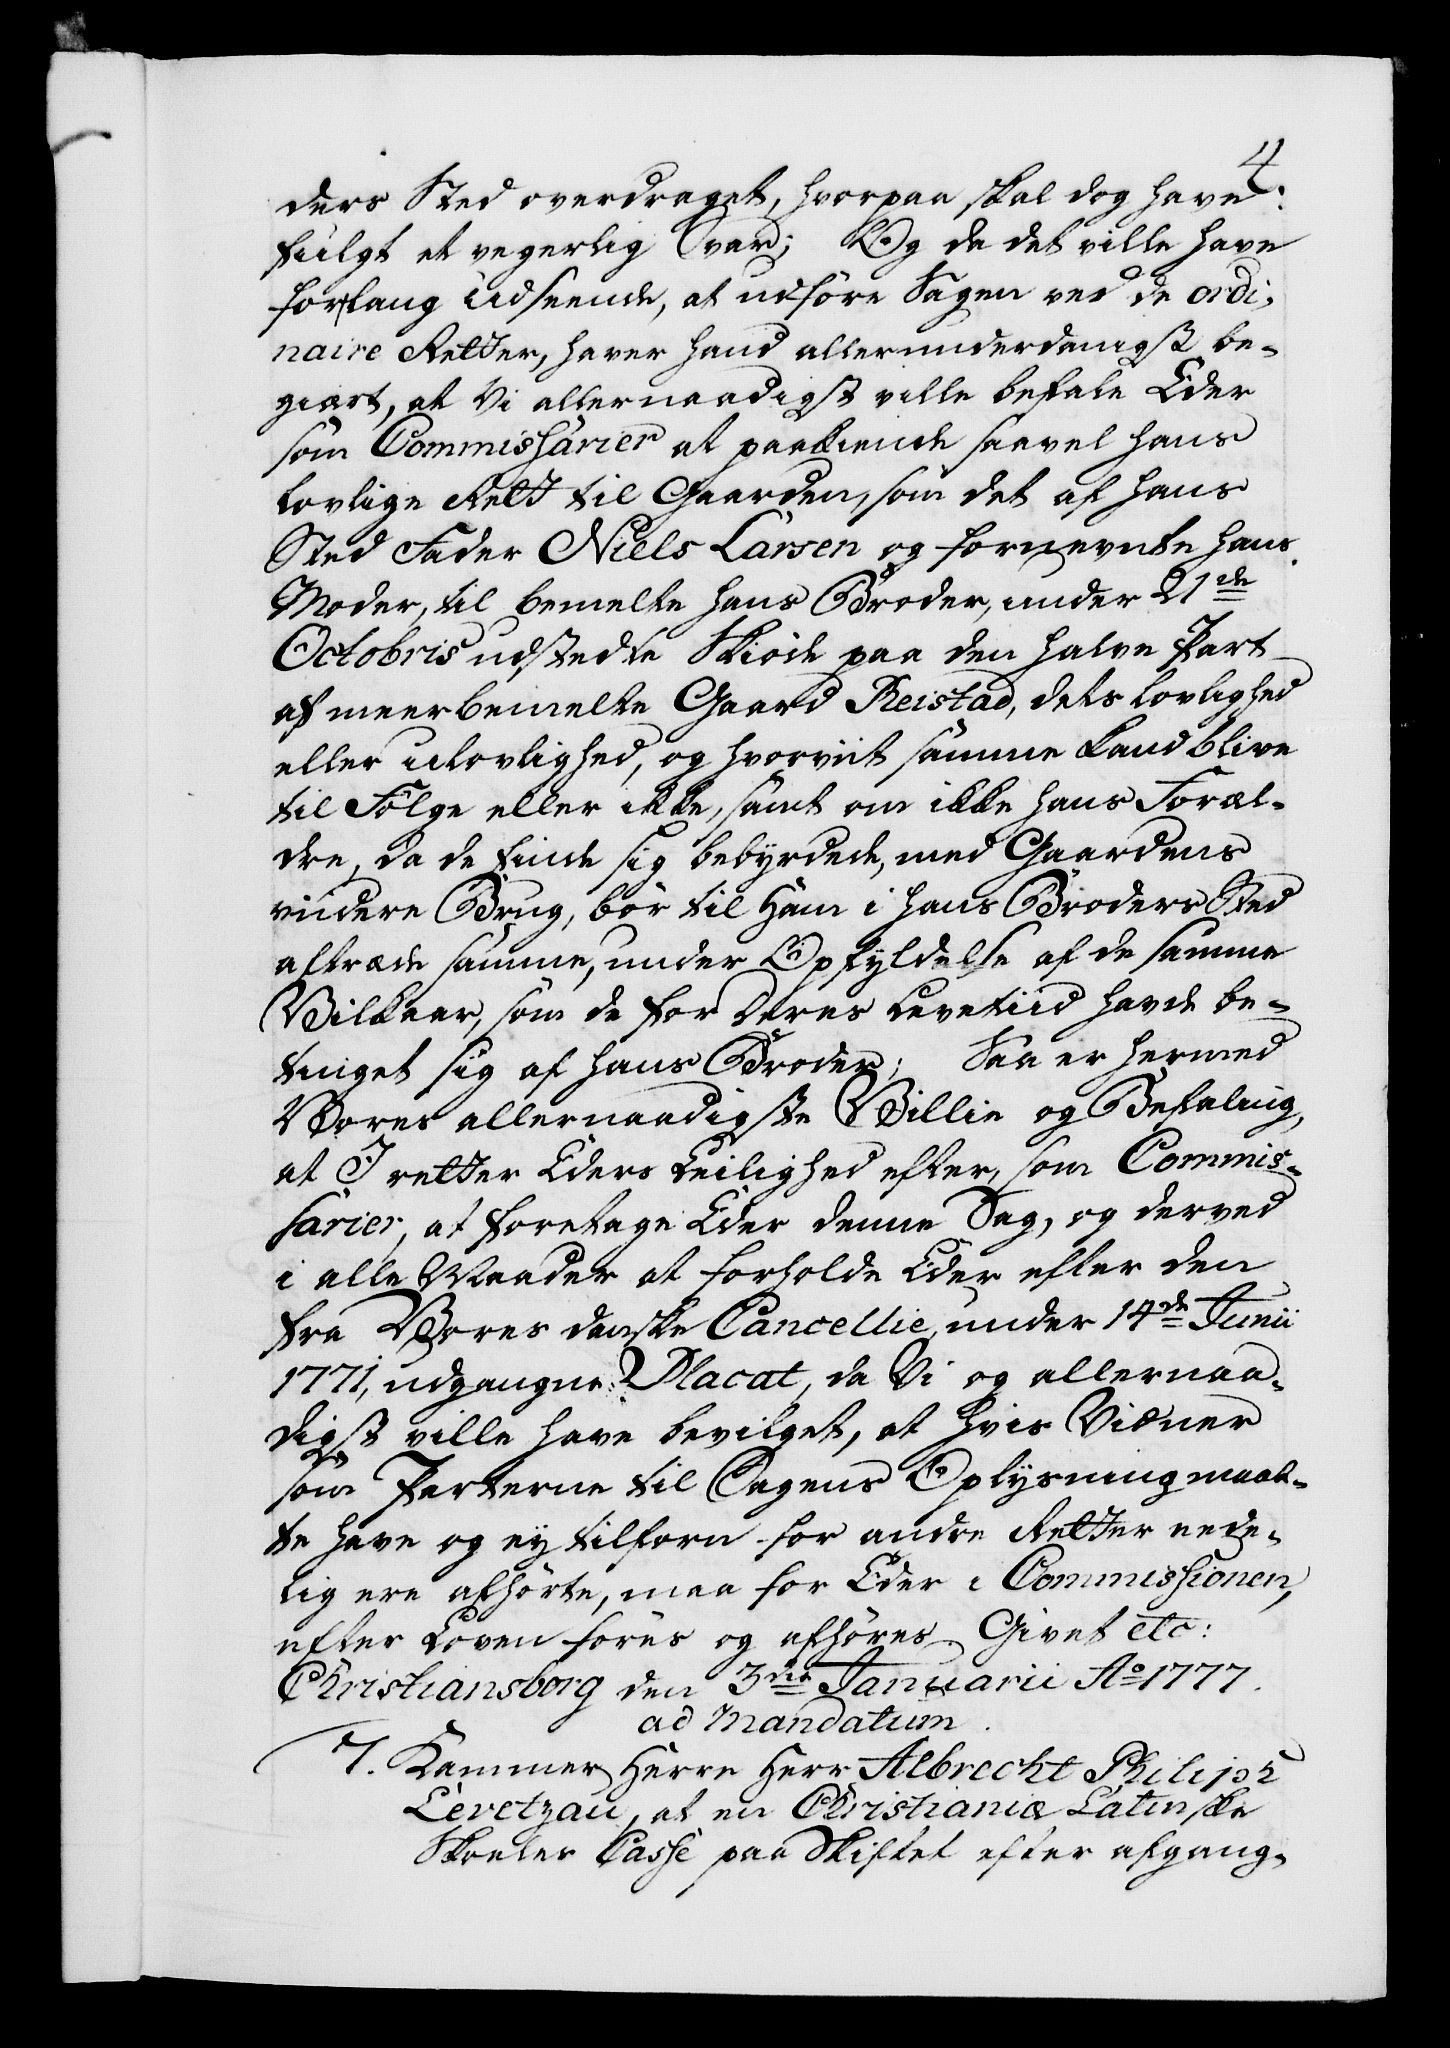 4.
ders Sted overdraget, hvorpaa skal dog have
fulgt et vegerlig Svar; Og da det ville have
forlang udseende, at udföre Sagen ved de ordi-
naire Retter, haver hand allerunderdanigst be-
giært, at Vi allernaadigst ville befale Eder
som Commissarier at paakiende saavel hans
lovlige Rett til Gaarden, som det af hans
Sted Fader Niels Larsen og fornevnte hans
Moder, til bemelte hans Broder, under 21de
Octobris udstedte Skiöde paa den halve Part
af meerbemelte Gaard Reistad, dets lovlighed
eller ulovlighed, og hvorvit samme kand blive
til Fölge eller ikke, samt om ikke hans Foræl-
dre, da de finde sig bebyrdede, med Gaardens
viidere Brug, bör til Ham i hans Broders Sted
aftræde samme, under Opfyldelse af de samme
Vilkaar, som de for deres Levetiid havde be-
tinget sig af hans Broder; Saa er hermed
Vores allernaadigste Villie og Befaling,
at I retter Eders Leilighed efter, som Commis-
sarier, at foretage Eder denne Sag, og derved
i alle Maader at forholde Eder efter den
fra Vores danske Cancellie, under 14de Junii
1771, udgangne Placat, da Vi og allernaa-
digst ville have bevilget, at hvis Vidner
som Parterne til Sagens Oplysning maat-
te have og ey tilforn for andre Retter eede-
lig ere afhörte, maa for Eder i Commissionen,
efter Loven föres og afhöres. Givet etc:
Christiansborg den 3die Januarii Ao 1777.
ad Mandatum.
7. Kammer Herre Herr Albrecht Philiph
Levetzau, at en Christianiæ Latinske
Skoeles Casse paa Skiftet efter afgang-